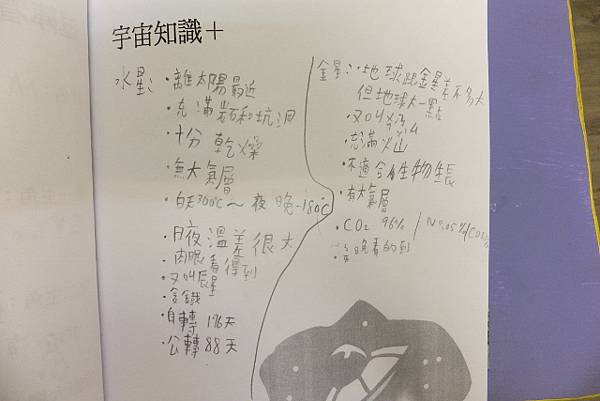 宇宙知識＋
水星：
・離太陽最近
・充滿岩石和坑洞
・十分乾燥
・無大氣層
・白天300℃～夜晚-180℃
・日夜溫差很大
・肉眼看得到
・又叫辰星
・含鐵
・自轉 176天
・公轉 88天
金星：・地球跟金星差不多大
但地球大一點
・又叫
・充滿火山
・不適合生物生長
・有大氣層
・CO2 96%
晚看的到